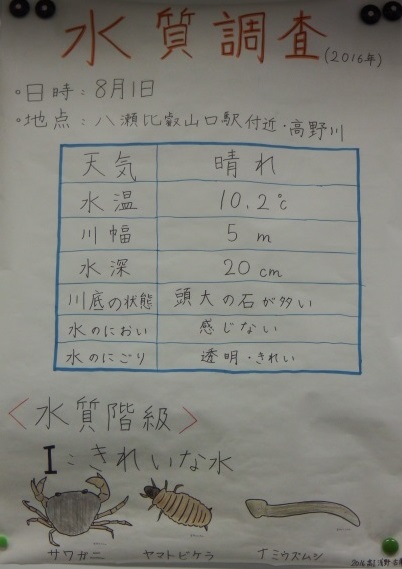 水質調査(2016年)
・日時:8月1日
・地点:八瀬比叡山口駅付近・高野川
天気 晴れ
水温 10.2℃
川幅 5 m
水深 20 cm
川底の状態 頭大の石が多い
水のにおい 感じない
水のにごり 透明・きれい
<水質階級>
I:きれいな水
サワガニ ヤマトビケラ ナミウズムシ